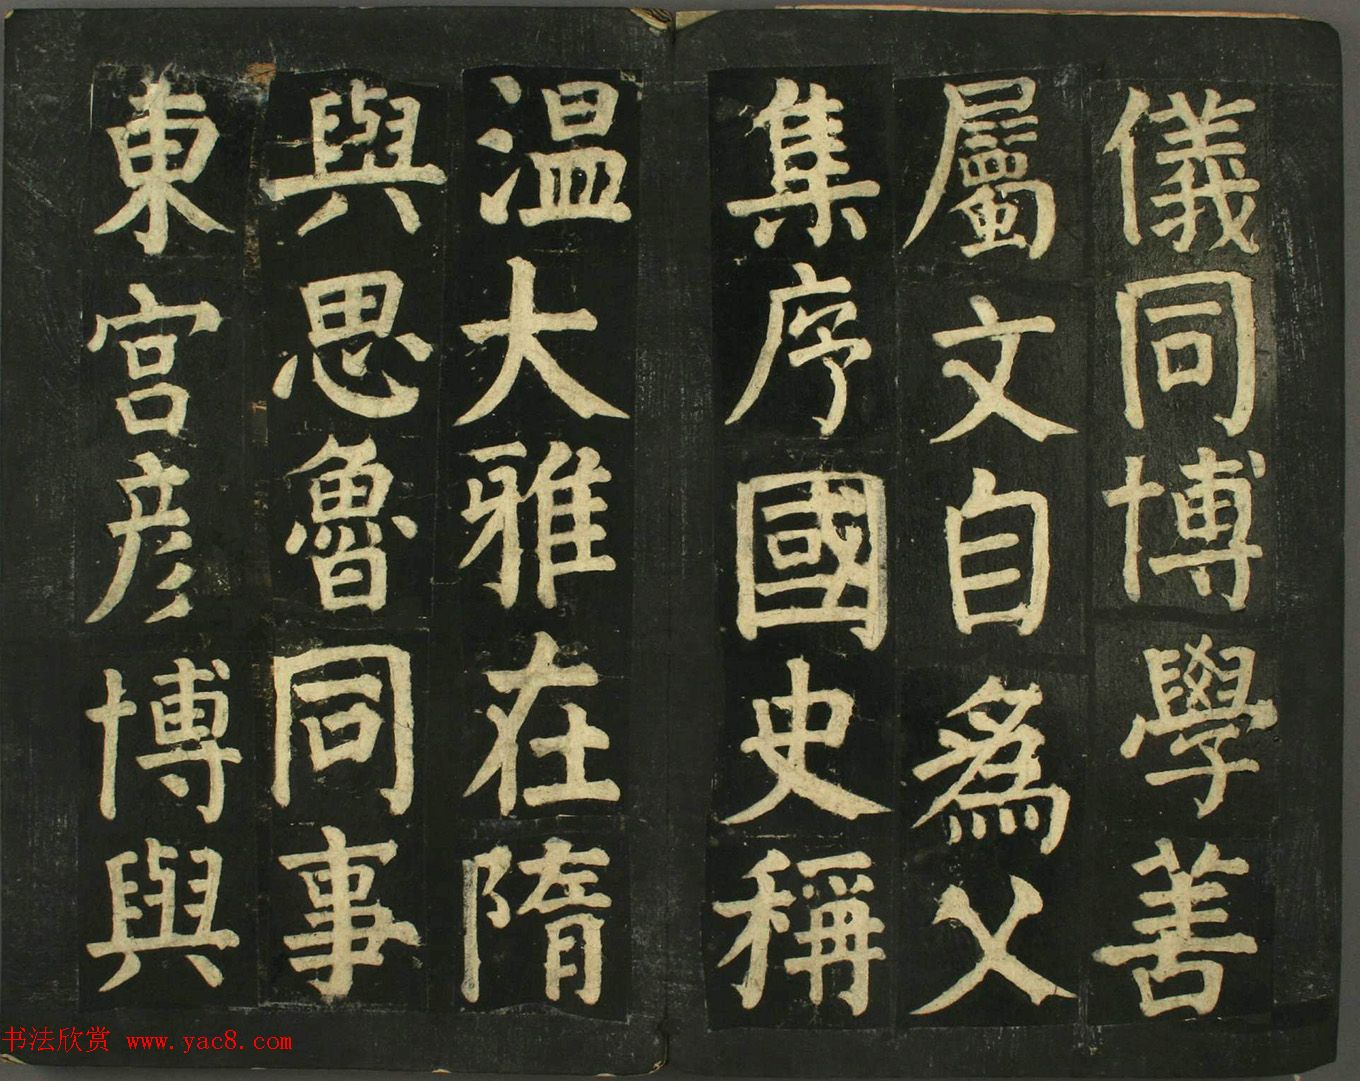 儀同博學善
屬文自為父
集序國史稱
温大雅在隋
與思魯同事
東宮彦博與
书法欣赏 www.yac8.com